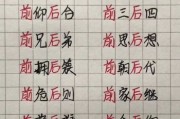 前仰后合 前三后四
前兄后弟 前思后想
前拥后簇 前朝后代
前危后则 前家后继